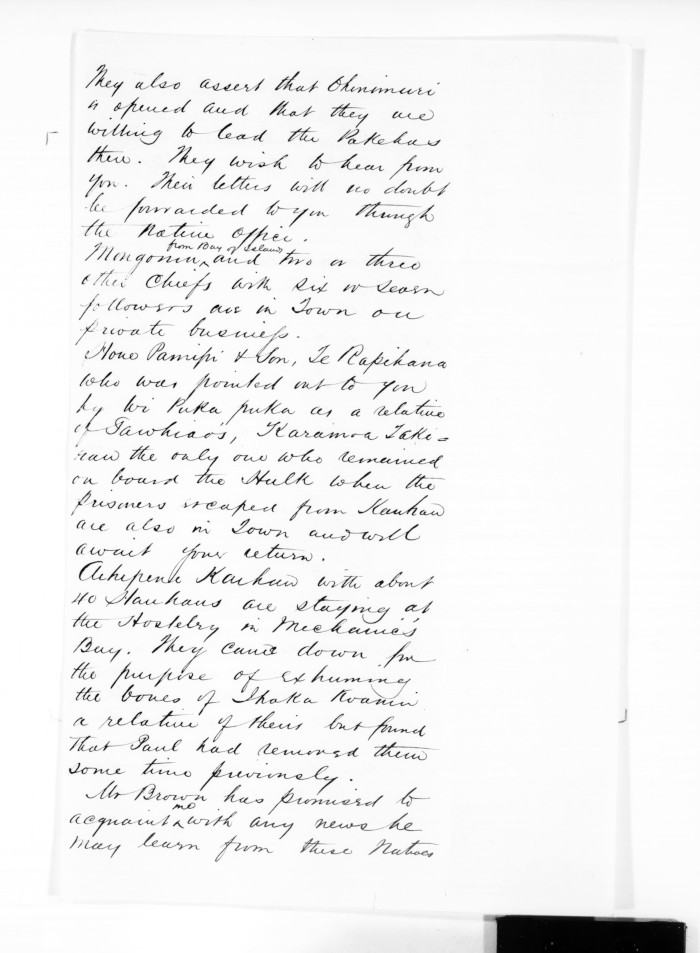 They also assert that Ohinimuri
is opened and that they are
willing to lead the Pakehas
there. They wish to hear from
you. Their letters will no doubt
be forwarded to you through
the Native Office.
from Bay of Islands
Mongonui and two or three
other Chiefs with six or seven
followers are in Town on
private business.
Hone Pamipi & Son, Te Rapihana
who was pointed out to you
by Wi Puka puka as a relative
of Tawhiao's, Karamoa Taki=
rau the only one who remained
on board the Hulk when the
prisoners escaped from Kawhau
are also in Town and will
await your return.
Kaihau with about
40 Hauhaus are staying at
the Hostelry in Mechanic's
Bay. They came down for
the purpose of exhuming
the bones of Ihaka
a relative of theirs but found
that Paul had removed them
some time previously.
Mr Brown has promised to
me
acquaint with any news he
may learn from these Natives